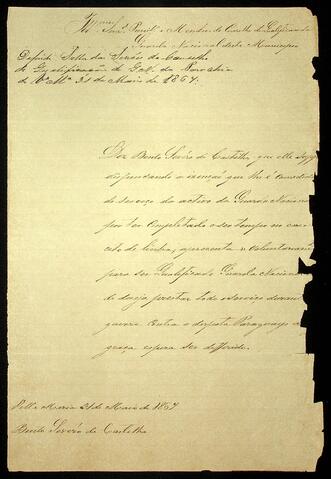 Ill.mos Snr.es Presid.e e Membros do Conselho de Qualificação da
Guarda Nacional deste Municipio
Deferido. Salla das Sessões do Conselho
de Qualificação da G. N. da Parochia
31 de Maio de 1867.
Diz Bento Severo de Castilho, que elle Supp.e
dispensando a izenção que lhe é concedida
do serviço da activa da Guarda Nacional
por ter completado o seu tempo em
de apresenta-se voluntariamente
para ser Qualificado Guarda Nacional
deseja prestar todo o serviço durante
guerra contra o despota Paraguayo
graça espera ser defferido.
Maria 31 de Maio de 1867
Bento Severo de Castilho